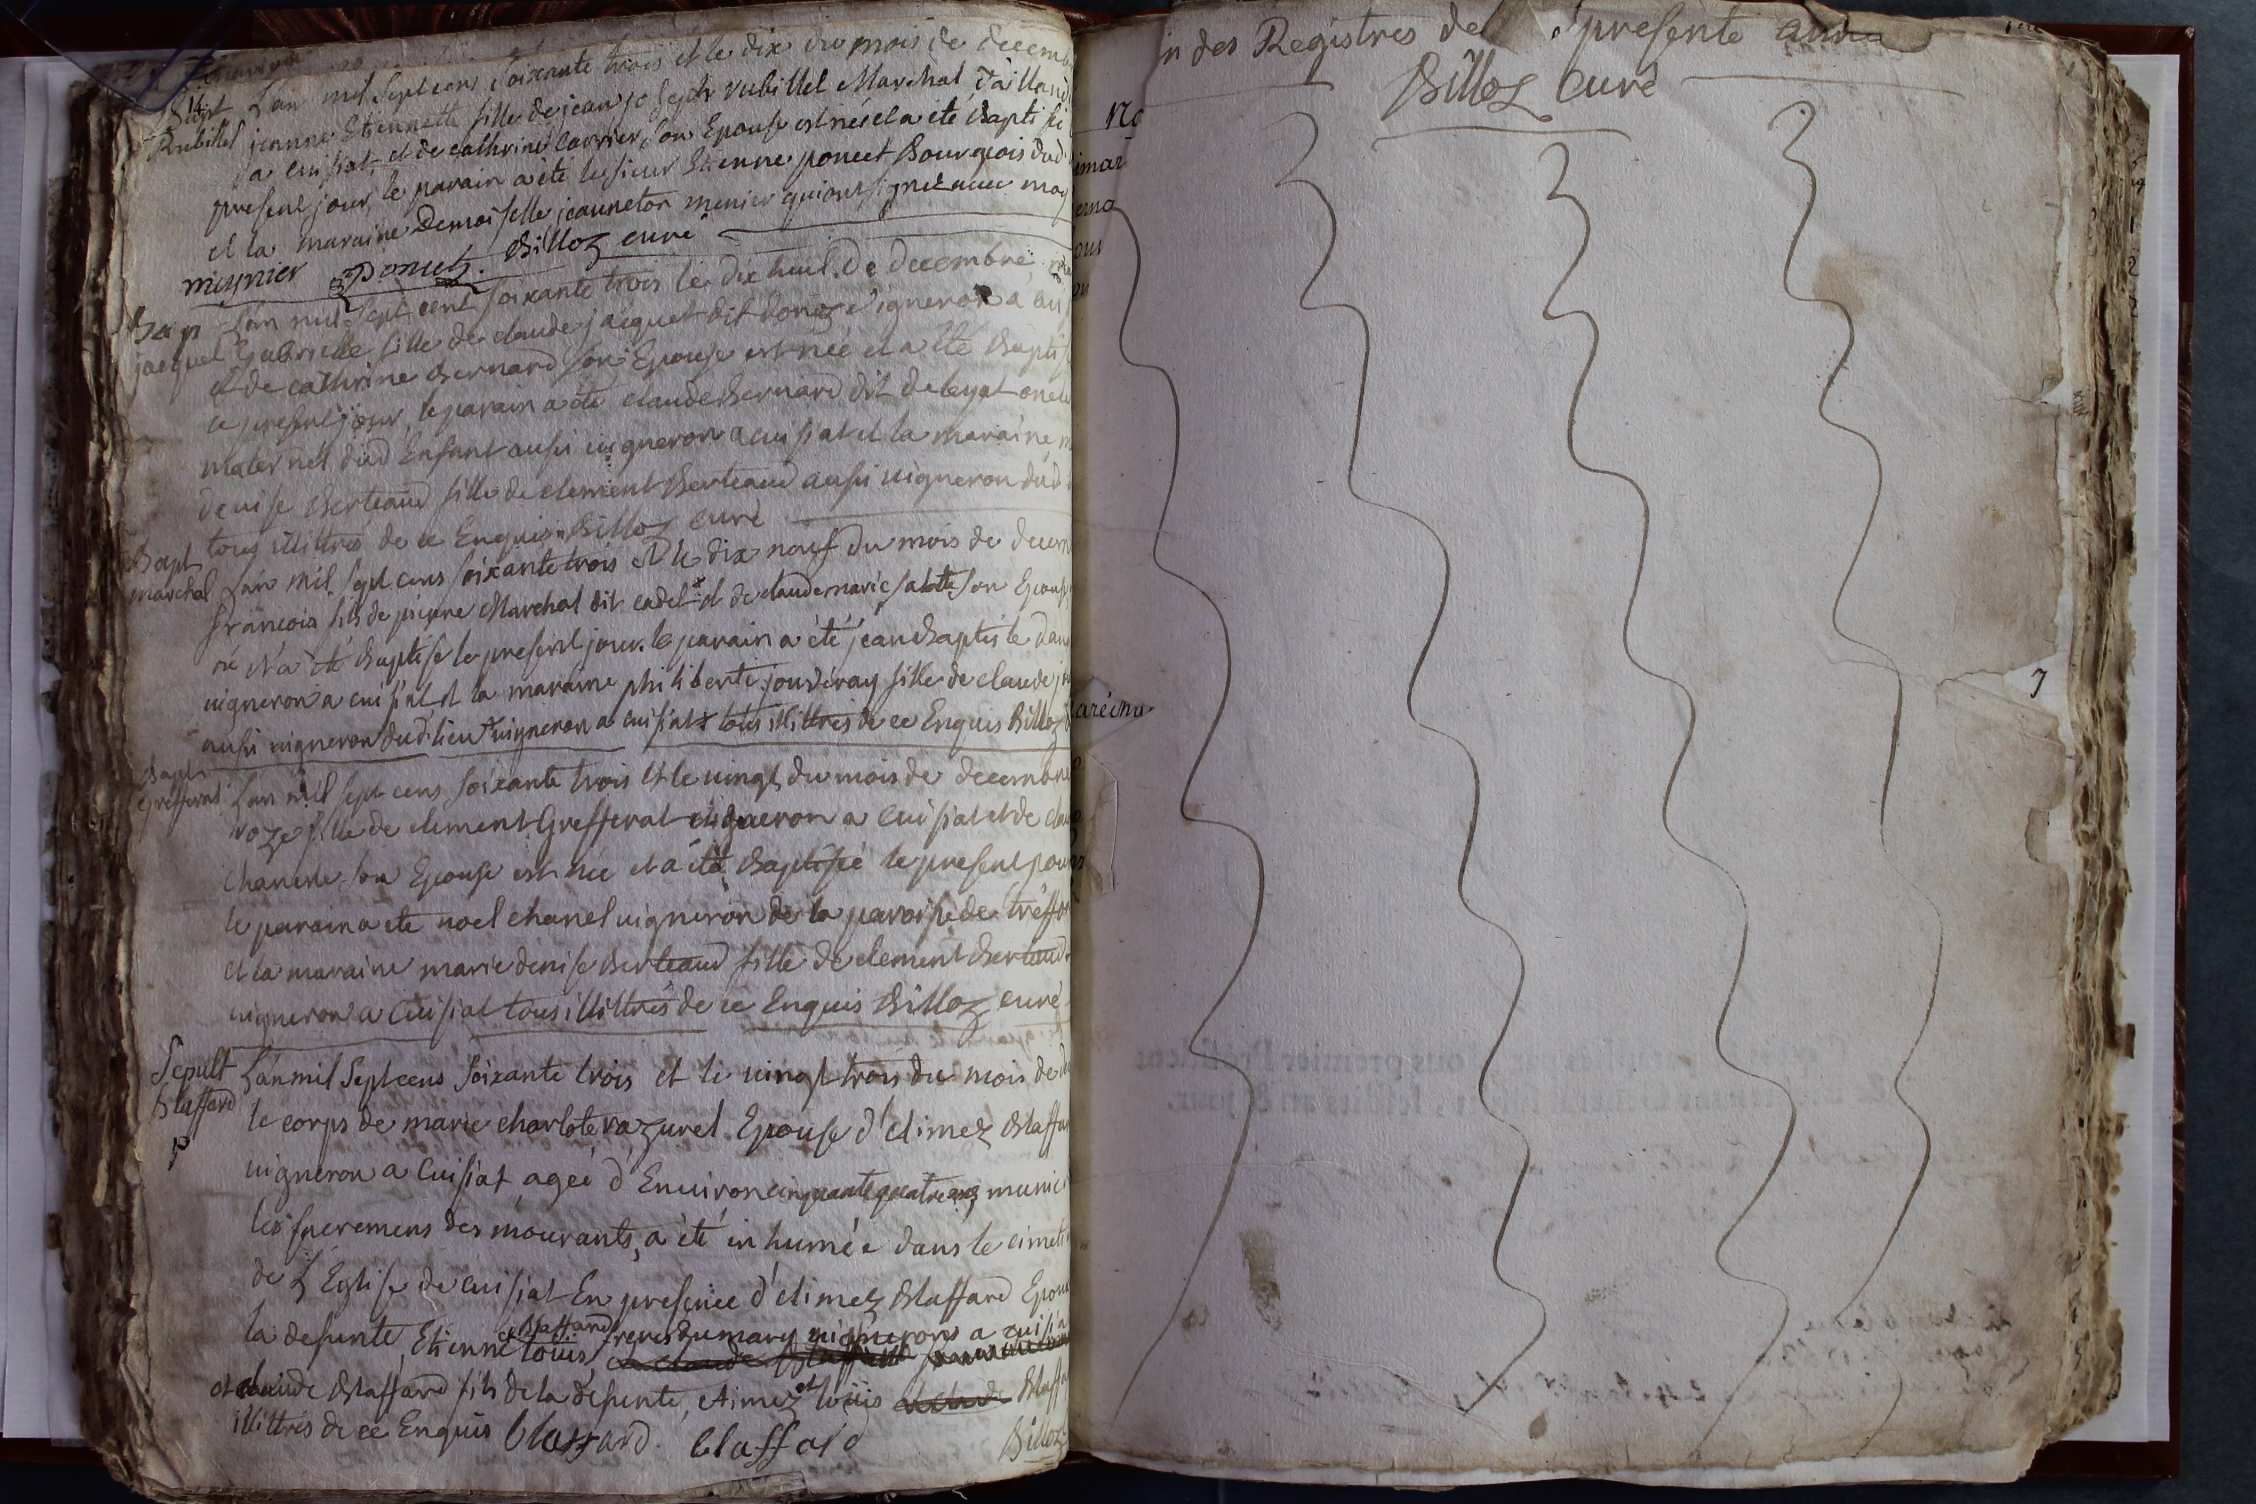 Bapt L'an mil Sept cens Soixante trois et le dix du mois de decemb
Rubillel jeanne Etiennette fille de jean joseph rubillel Marchal
a cuisiat, et de cathrine Carrier son Epouse est née et a été baptisé
present jour, le parain a été le sieur Etienne poncet Bourgeois dud
et la maraine Demoiselle jeanneton menier qui ont signé avec moy
miynier Poncet. Billoz curé
Bap L'an mil Sept cent soixante trois le dix huit de decembre
jaequet gabrielle fille de claude jaequet dit donez vigneron a cui
et de cathrine Bernard son Epouse est née et a été Baptisé
ce present jour, le parain a été claude Bernard dit deleyat oncle
maternel dud Enfant aussi vigneron a cuisiat et la maraine m
denise Berteaud fille de clement Berteaud aussi vigneron dud
tous illittrés de ce Enquis Billoz curé
Bapt L'an mil sept cens soixante trois et le dix neuf du mois de decem
marchal françois fils de pierre Marchal dit cadet et de claudemarie salotte son Epouse
né et a été Baptisé le present jour. le parain a été jean Baptiste dan
vigneron a cuisiat et la maraine philiberte jouvray fille de claude j
aussi vigneron dud. lieu vigneron a cuisiat tous illittrés de ce Enquis Billoz
Bapt L'an mil sept cens soixante trois et le vingt du mois de decembre
grefferat roze fille de clement Grefferat vigneron a cuisiat et de clau
chanel son Epouse est née et a été Baptisée le present jour
le parain a été noel chanel vigneron de la paroisse de treffor
et la maraine marie denise Berteaud fille de clement Berteaud
vigneron a Cuisiat tous illittrés de ce Enquis Billoz curé
Sepult L'an mil Sept cens Soixante trois et le vingt trois du mois de de
blaffard le corps de marie charlote vazurel Epouse d'Aimez Blaffar
vigneron a Cuisiat agée d'Environ cinquante quatre ans munie
les sacremens des mourants, a été inhumée dans le cimeti
de L'Eglise de cuisiat En presence d'Aimez Blaffard Epoux
la defunte, Etienne Louis Blaffard freres du mary vignerons a cuisia
et claude Blaffard fils de la defunte, Aimez et loüis Blaffa
illittrés de ce Enquis blaffard blaffard Billoz
in des Registres de presente année
Billoz Curé
arécina
7